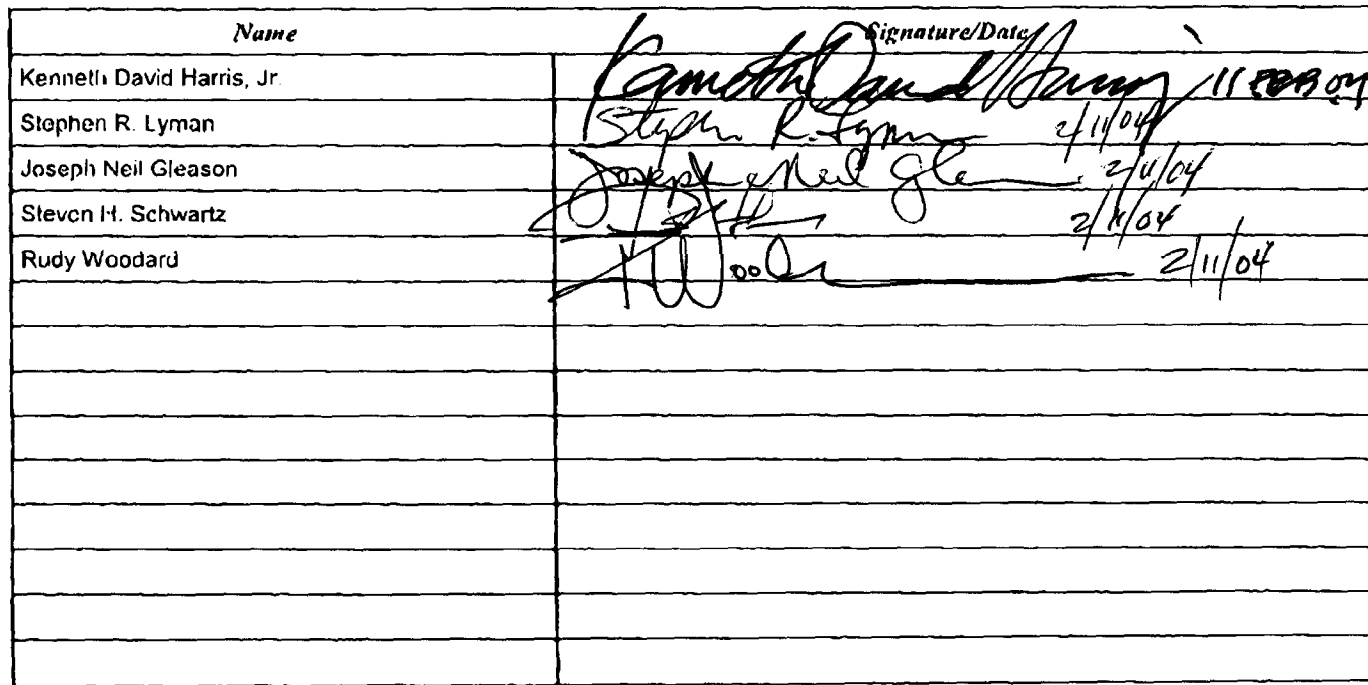 Name Signature/Date
Kenneth David Harris, Jr. Kenneth David Harris 11 FEB 04
Stephen R. Lyman Stephen R. Lyman 2/11/04
Joseph Neil Gleason Joseph Neil Gleason 2/11/04
Steven H. Schwartz 2/11/04
Rudy Woodard 2/11/04